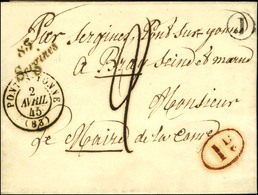 Par Sergines, Pont sur yonne
83
Sergines
A Bray Seine et marne
PONT-S-YONNE
2
AVRIL
45
(83)
4
Monsieur
Le Maire de la
1D